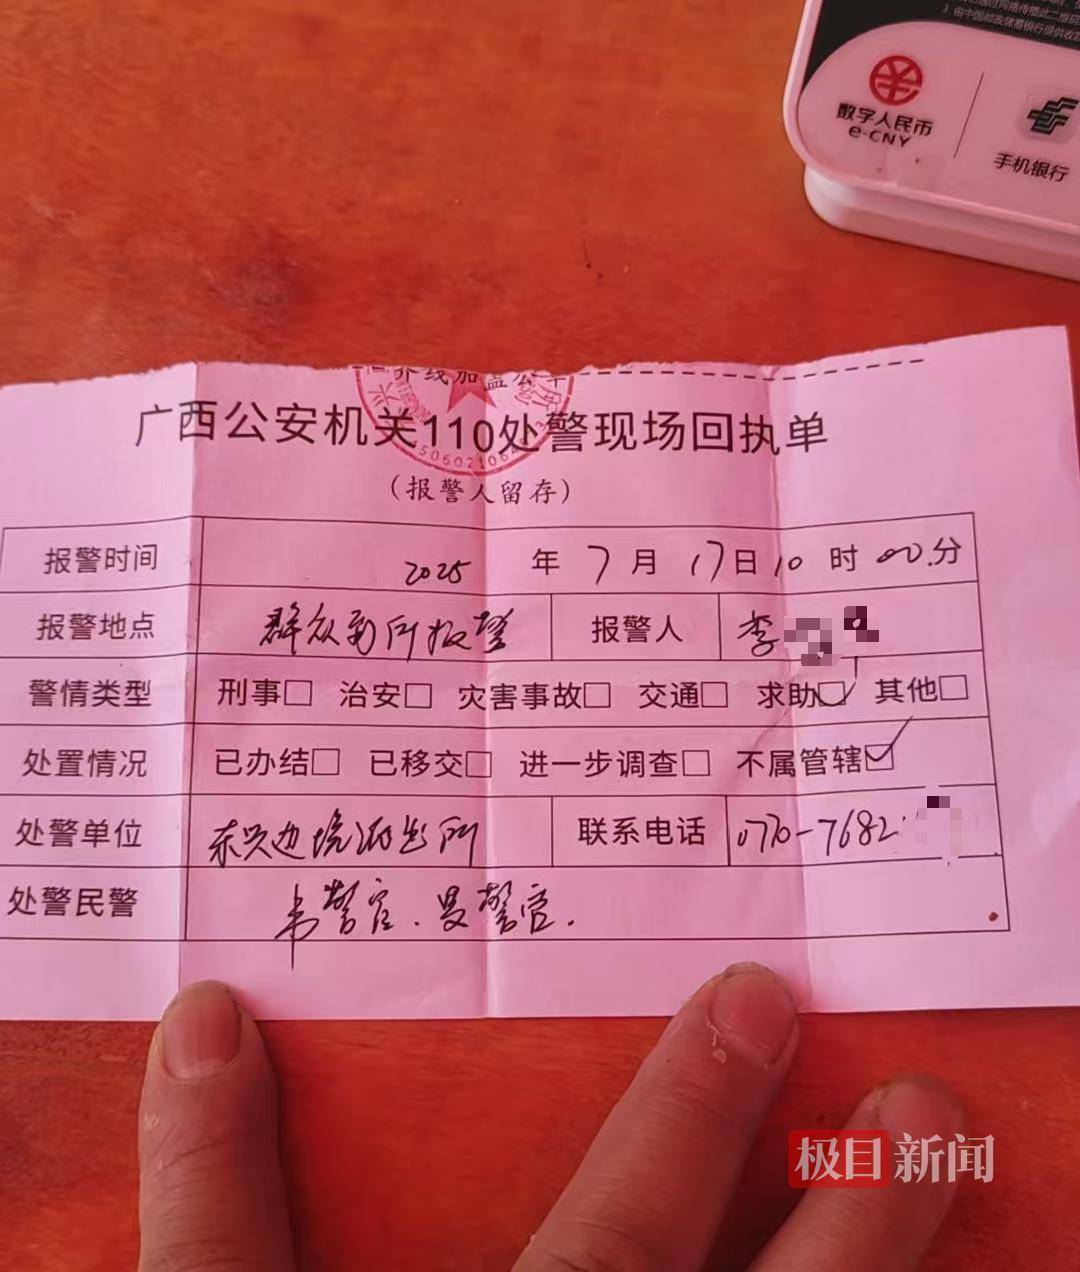 3. 由中国邮政储蓄银行提供收款
数字人民币
e-CNY
手机银行
广西公安机关110处警现场回执单
（报警人留存）
报警时间 2025 年 7 月 17 日 10 时 00 分
报警地点 群众到所报警 报警人 李
警情类型 刑事□ 治安□ 灾害事故□ 交通□ 求助☑ 其他□
处置情况 已办结□ 已移交□ 进一步调查□ 不属管辖☑
处警单位 东兴边境派出所 联系电话 0770-7682
处警民警 韦警官、警官.
极目新闻